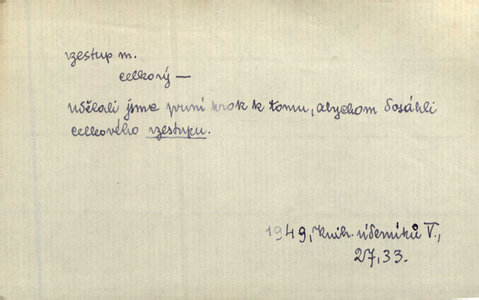 vzestup m.
celkový —
udělali jsme první krok k tomu, abychom dosáhli
celkového vzestupu.
1949, Knih. úderníků V.,
27, 33.